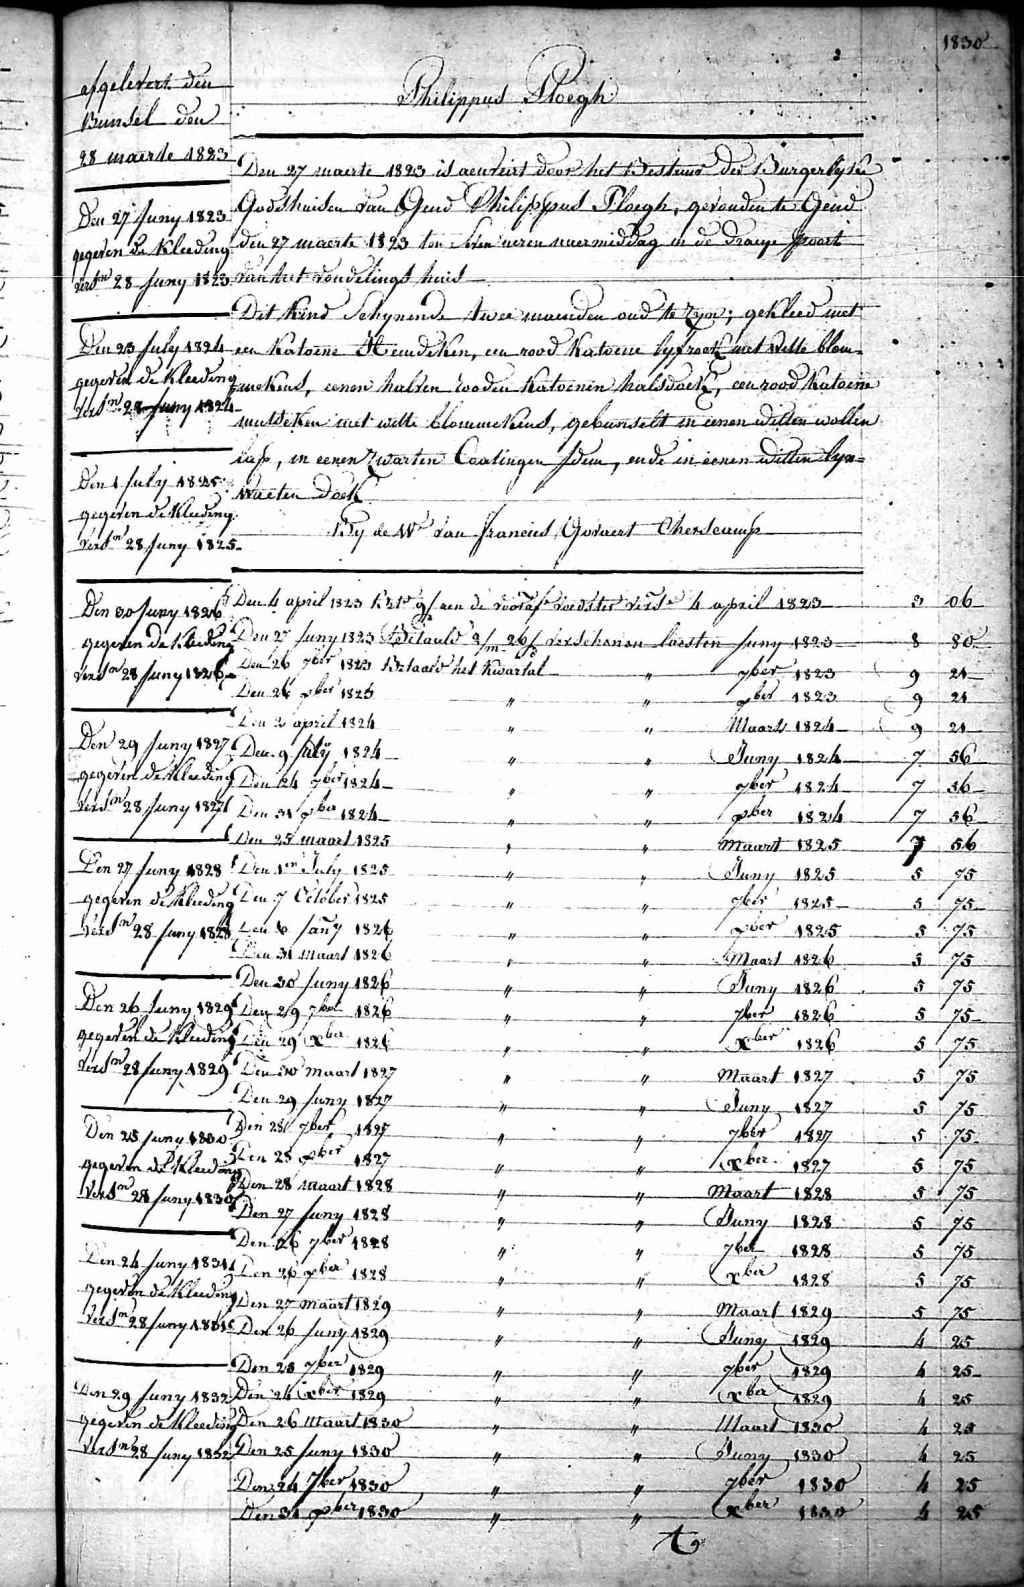 1830
Philippus Ploegh
afgelevert den
Bunsel den
28 maerte 1823
Den 27 Juny 1823
gegeven de Kleeding
versn 28 Juny 1823
Den 23 July 1824
gegeven de Kleeding
versn 28 Juny 1824
Den 1 July 1825
gegeven de Kleeding
versn 28 Juny 1825
Den 30 Juny 1826
gegeven de Kleeding
versn 28 Juny 1826
Den 29 Juny 1827
gegeven de Kleeding
versn 28 Juny 1827
Den 27 Juny 1828
gegeven de Kleeding
versn 28 Juny 1828
Den 26 Juny 1829
gegeven de Kleeding
versn 28 Juny 1829
Den 25 Juny 1830
gegeven de Kleeding
versn 28 Juny 1830
Den 24 Juny 1831
gegeven de Kleeding
versn 28 Juny 1831
Den 29 Juny 1832
gegeven de Kleeding
versn 28 Juny 1832
Den 27 maerte 1823 is aenveirt door het Bestuur der Burgerlyke
Godshuisen van Gend Philippus Ploegh, gevonden te Gend
den 27 maerte 1823 ten seven uren naermiddag in de draeye poort
van het vondelings huis
Dit Kind Schynende twee maenden oud te zyn; gekleed met
een Katoene Hemdeken, een rood Katoene lyfrock met witte blom-
mekens, eenen halven rooden Katoenen halsdoek, een rood Katoene
mutseken met witte blommekens, gebunselt in eenen witten wollen
lap, in eenen zwarten Coatingen idem, ende in eenen witten lyn=
waeten doek
By de We van Francies Govaert Cherscamp
Den 4 april 1823 aen de voedster 4 april 1823 3 06
Den 27 Juny 1823 Betaald verschenen laesten Juny 1823 8 80
Den 26 7ber 1823 Betaald het Kwartal " 7ber 1823 9 21
Den 26 xber 1823 " " xber 1823 9 21
Den 2 april 1824 " " Maart 1824 9 21
Den 9 July 1824 " " Juny 1824 7 56
Den 24 7ber 1824 " " 7ber 1824 7 56
Den 31 xber 1824 " " xber 1824 7 56
Den 25 maart 1825 " " Maart 1825 7 56
Den 1en July 1825 " " Juny 1825 5 75
Den 7 October 1825 " " 7ber 1825 5 75
Den 6 Jany 1826 " " xber 1825 5 75
Den 31 maart 1826 " " Maart 1826 5 75
Den 30 Juny 1826 " " Juny 1826 5 75
Den 29 7ber 1826 " " 7ber 1826 5 75
Den 29 xber 1826 " " xber 1826 5 75
Den 30 maart 1827 " " Maart 1827 5 75
Den 29 Juny 1827 " " Juny 1827 5 75
Den 28 7ber 1827 " " 7ber 1827 5 75
Den 28 xber 1827 " " xber 1827 5 75
Den 28 maart 1828 " " Maart 1828 5 75
Den 27 Juny 1828 " " Juny 1828 5 75
Den 26 7ber 1828 " " 7ber 1828 5 75
Den 26 xber 1828 " " xber 1828 5 75
Den 27 maart 1829 " " Maart 1829 5 75
Den 26 Juny 1829 " " Juny 1829 4 25
Den 25 7ber 1829 " " 7ber 1829 4 25
Den 24 xber 1829 " " xber 1829 4 25
Den 26 maart 1830 " " Maart 1830 4 25
Den 25 Juny 1830 " " Juny 1830 4 25
Den 24 7ber 1830 " " 7ber 1830 4 25
Den 31 xber 1830 " " xber 1830 4 25